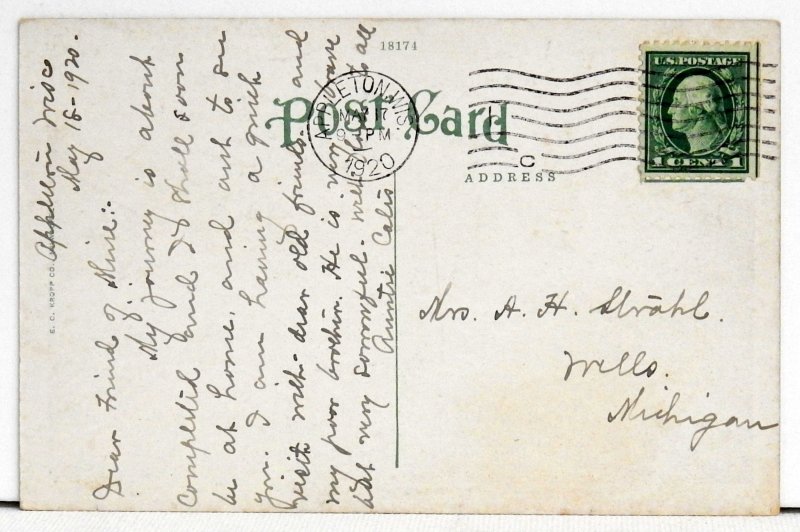 18174
POST CARD
ADDRESS
U.S. POSTAGE
1 CENT 1
APPLETON, WIS.
MAY 17
9 PM
1920
C
E. C. KROPP CO.
Appleton Wisc
May 16 - 1920.
Dear Friend of Mine:-
My journey is about
completed and I shall soon
be at home, and wish to see
you. I am having a quick
visit with dear old friends, and
my poor brother. He is very brave
but very sorrowful. With love to all
Auntie
Mrs. A. H. Ströhl.
Wells.
Michigan